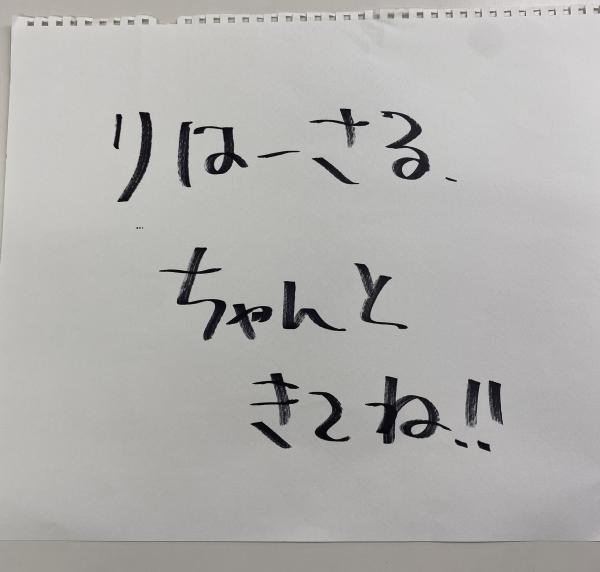 りはーさる、
ちゃんと
きてね!!